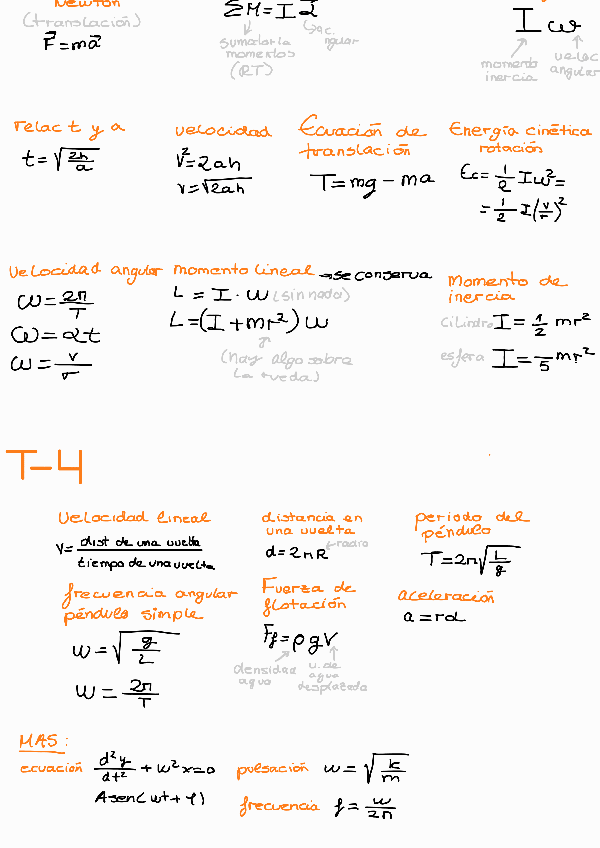 Newton
(translación)
F⃗=ma⃗
ΣM=I α⃗
sumatorio momentos (RT)
ac. angular
I ω
momento inercia
veloc angular
relac t y a
t=√(2h/a)
velocidad
v²=2ah
v=√2ah
Ecuación de translación
T=mg-ma
Energía cinética rotación
Ec=1/2 Iω²=
=1/2 I(v/r)²
Velocidad angular
ω=2π/T
ω=αt
ω=v/r
momento lineal →se conserva
L = I · ω (sin nada)
L=(I+mr²)ω
(hay algo sobre la rueda)
Momento de inercia
cilindro I=1/2 mr²
esfera I= /5 mr²
T-4
Velocidad lineal
v= dist de una vuelta / tiempo de una vuelta
distancia en una vuelta
d=2πR
radio
periodo del péndulo
T=2π√(L/g)
frecuencia angular péndulo simple
ω=√(g/L)
ω=2π/T
Fuerza de flotación
Ff=ρgV
densidad agua
v. de agua desplazada
aceleración
a=rα
MAS:
ecuación d²y/dt² + ω²x=0
Asen(ωt+φ)
pulsación ω=√(k/m)
frecuencia f=ω/2π